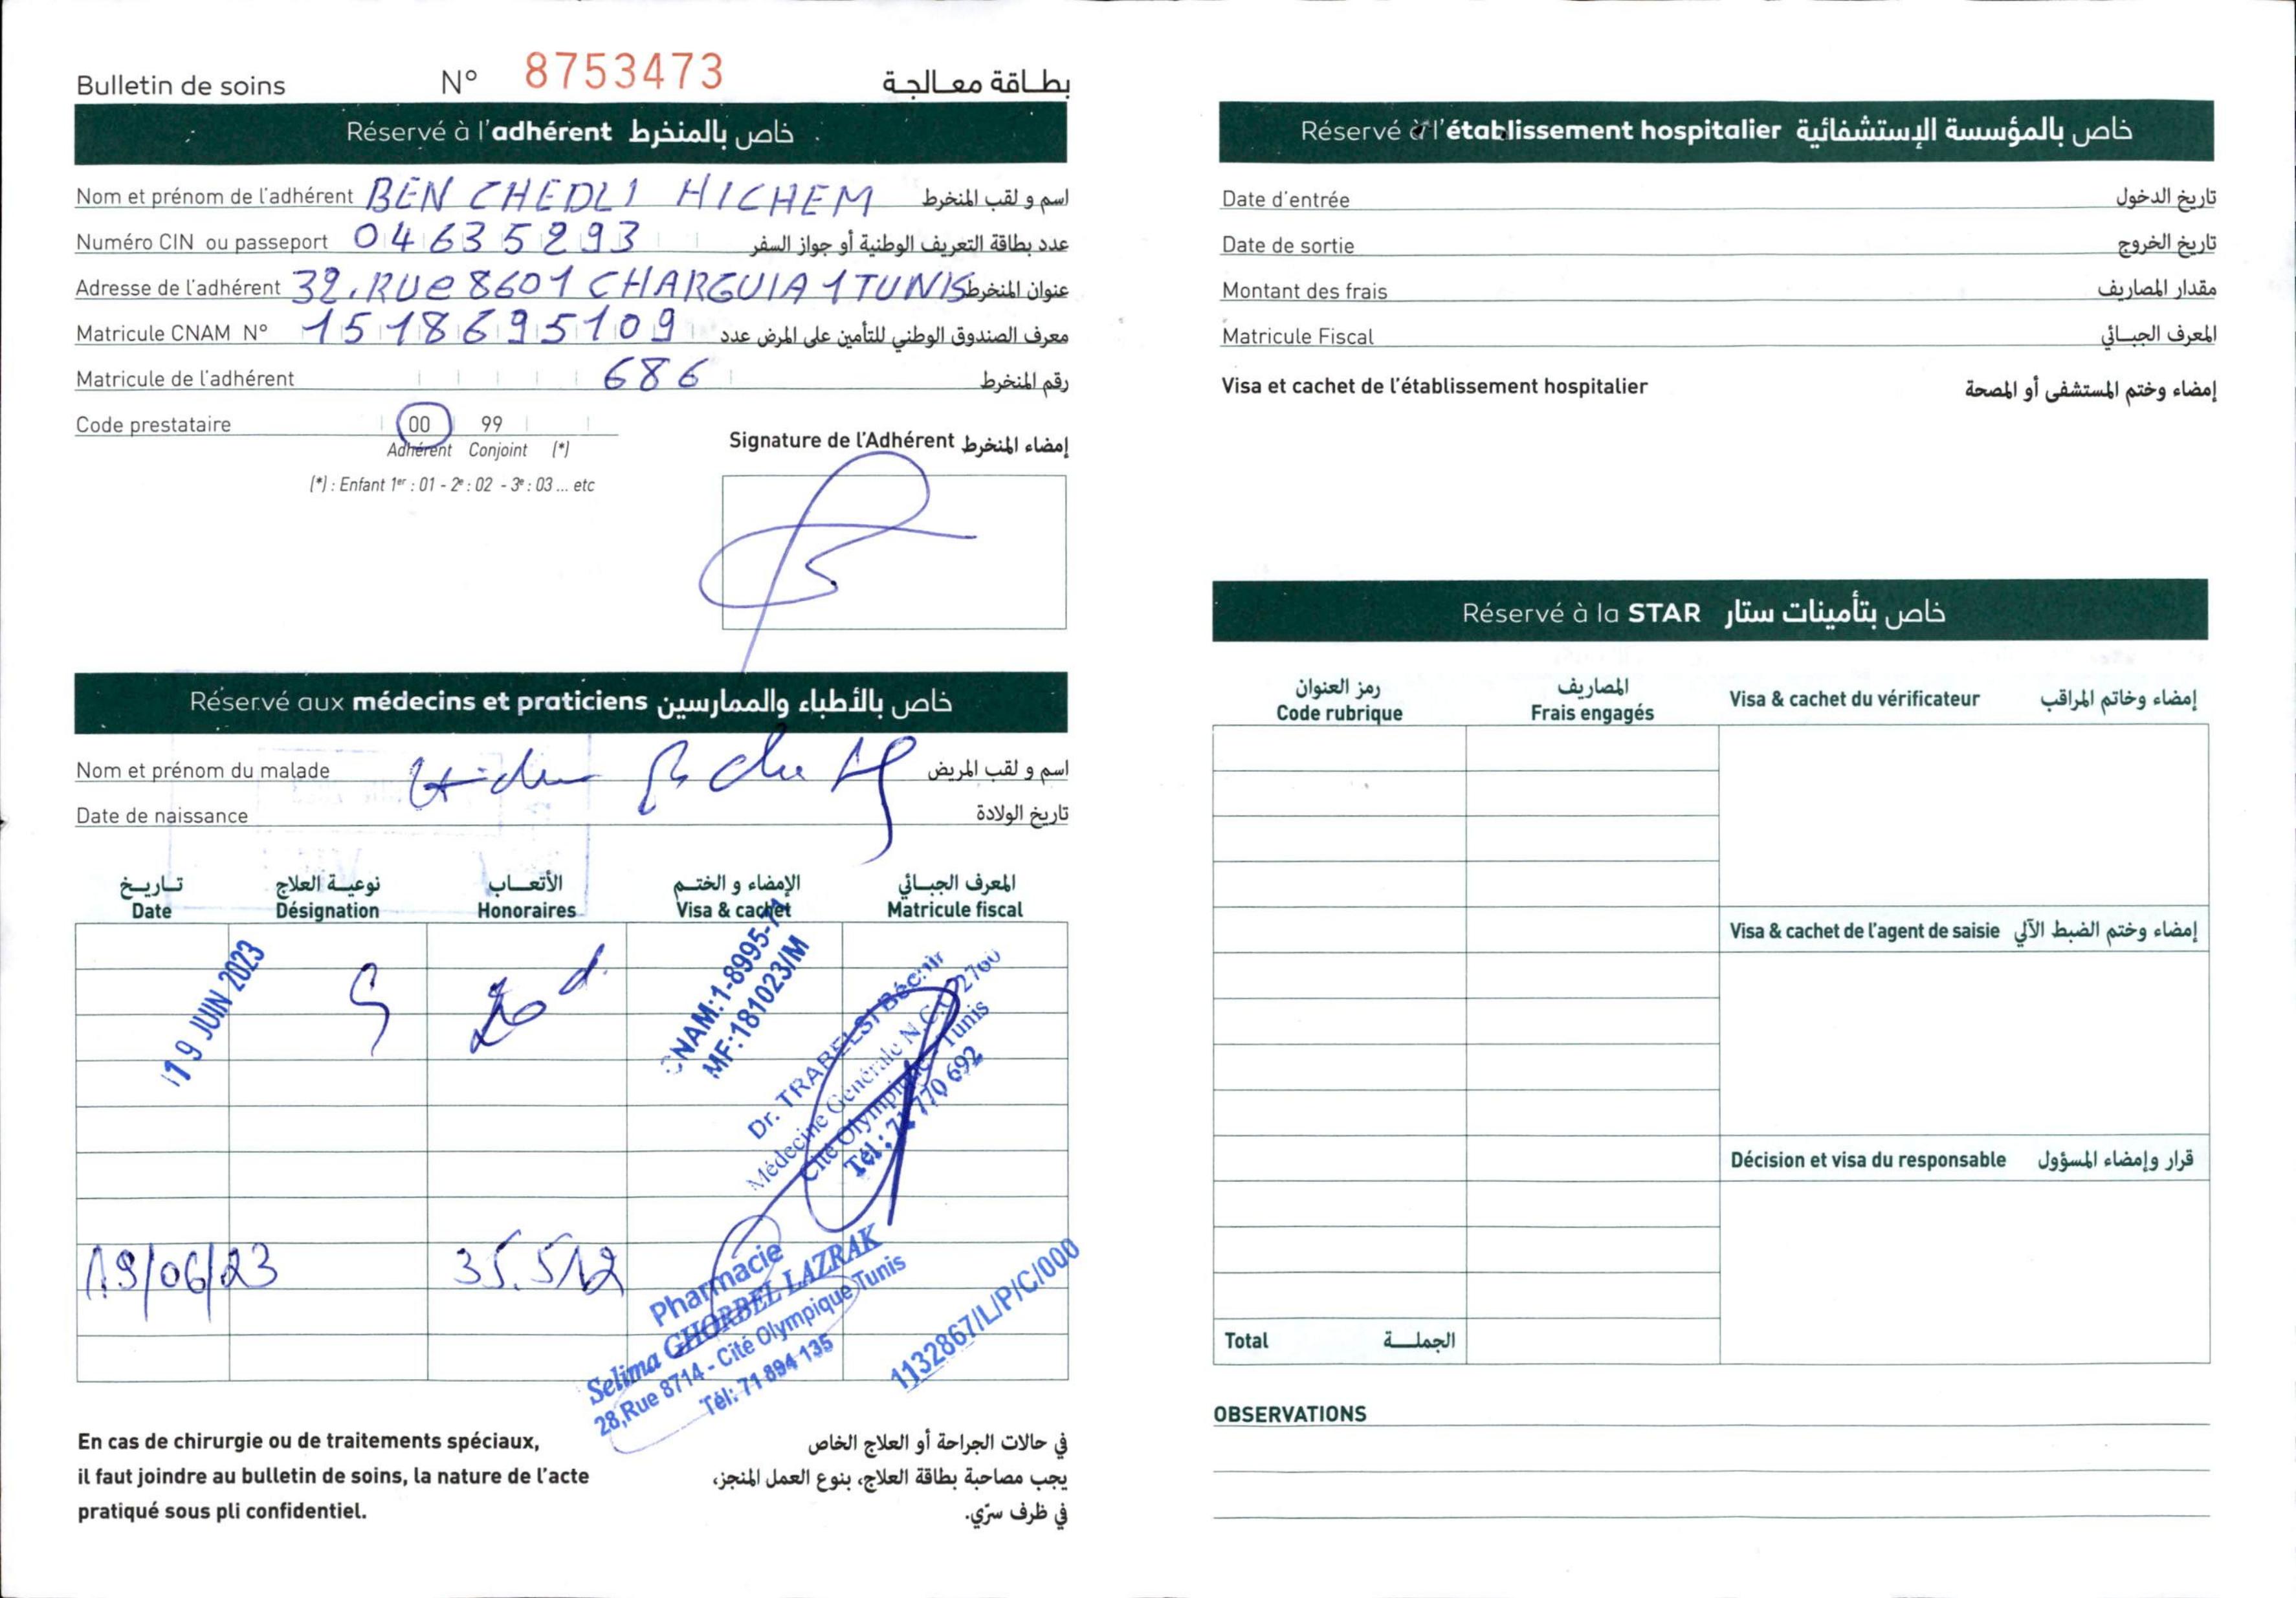 Bulletin de soins N° 8753473 بطاقة معالجة
Réservé à l'adhérent خاص بالمنخرط
Nom et prénom de l'adhérent BEN CHEDLI HICHEM اسم و لقب المنخرط
Numéro CIN ou passeport 04635293 عدد بطاقة التعريف الوطنية أو جواز السفر
Adresse de l'adhérent 32, RUe 8601 CHARGUIA 1 TUNIS عنوان المنخرط
Matricule CNAM N° 1518695109 معرف الصندوق الوطني للتأمين على المرض عدد
Matricule de l'adhérent 686 رقم المنخرط
Code prestataire 00 99
Adhérent Conjoint (*)
(*) : Enfant 1er : 01 - 2e : 02 - 3e : 03 ... etc
Signature de l'Adhérent إمضاء المنخرط
Réservé aux médecins et praticiens خاص بالأطباء والممارسين
Nom et prénom du malade اسم و لقب المريض
Date de naissance تاريخ الولادة
تاريخ نوعية العلاج الأتعاب الإمضاء و الختم المعرف الجبائي
Date Désignation Honoraires Visa & cachet Matricule fiscal
19 JUIN 2023
CNAM:1-8995-71
MF:181023/M
Dr. TRABELSI Béchir
Médecine Générale N.C.I. 2760
Cité Olympique - Tunis
Tél : 71 770 692
19/06/23 35.512
Pharmacie
Selima GHORBEL LAZRAK
28,Rue 8714 - Cité Olympique Tunis
Tél: 71 894 135
1132867/L/P/C/000
En cas de chirurgie ou de traitements spéciaux,
il faut joindre au bulletin de soins, la nature de l'acte
pratiqué sous pli confidentiel.
في حالات الجراحة أو العلاج الخاص
يجب مصاحبة بطاقة العلاج، بنوع العمل المنجز،
في ظرف سرّي.
Réservé à l'établissement hospitalier خاص بالمؤسسة الإستشفائية
Date d'entrée تاريخ الدخول
Date de sortie تاريخ الخروج
Montant des frais مقدار المصاريف
Matricule Fiscal المعرف الجبائي
Visa et cachet de l'établissement hospitalier إمضاء وختم المستشفى أو المصحة
Réservé à la STAR خاص بتأمينات ستار
رمز العنوان المصاريف
Code rubrique Frais engagés
Visa & cachet du vérificateur إمضاء وخاتم المراقب
Visa & cachet de l'agent de saisie إمضاء وختم الضبط الآلي
Décision et visa du responsable قرار وإمضاء المسؤول
Total الجملة
OBSERVATIONS